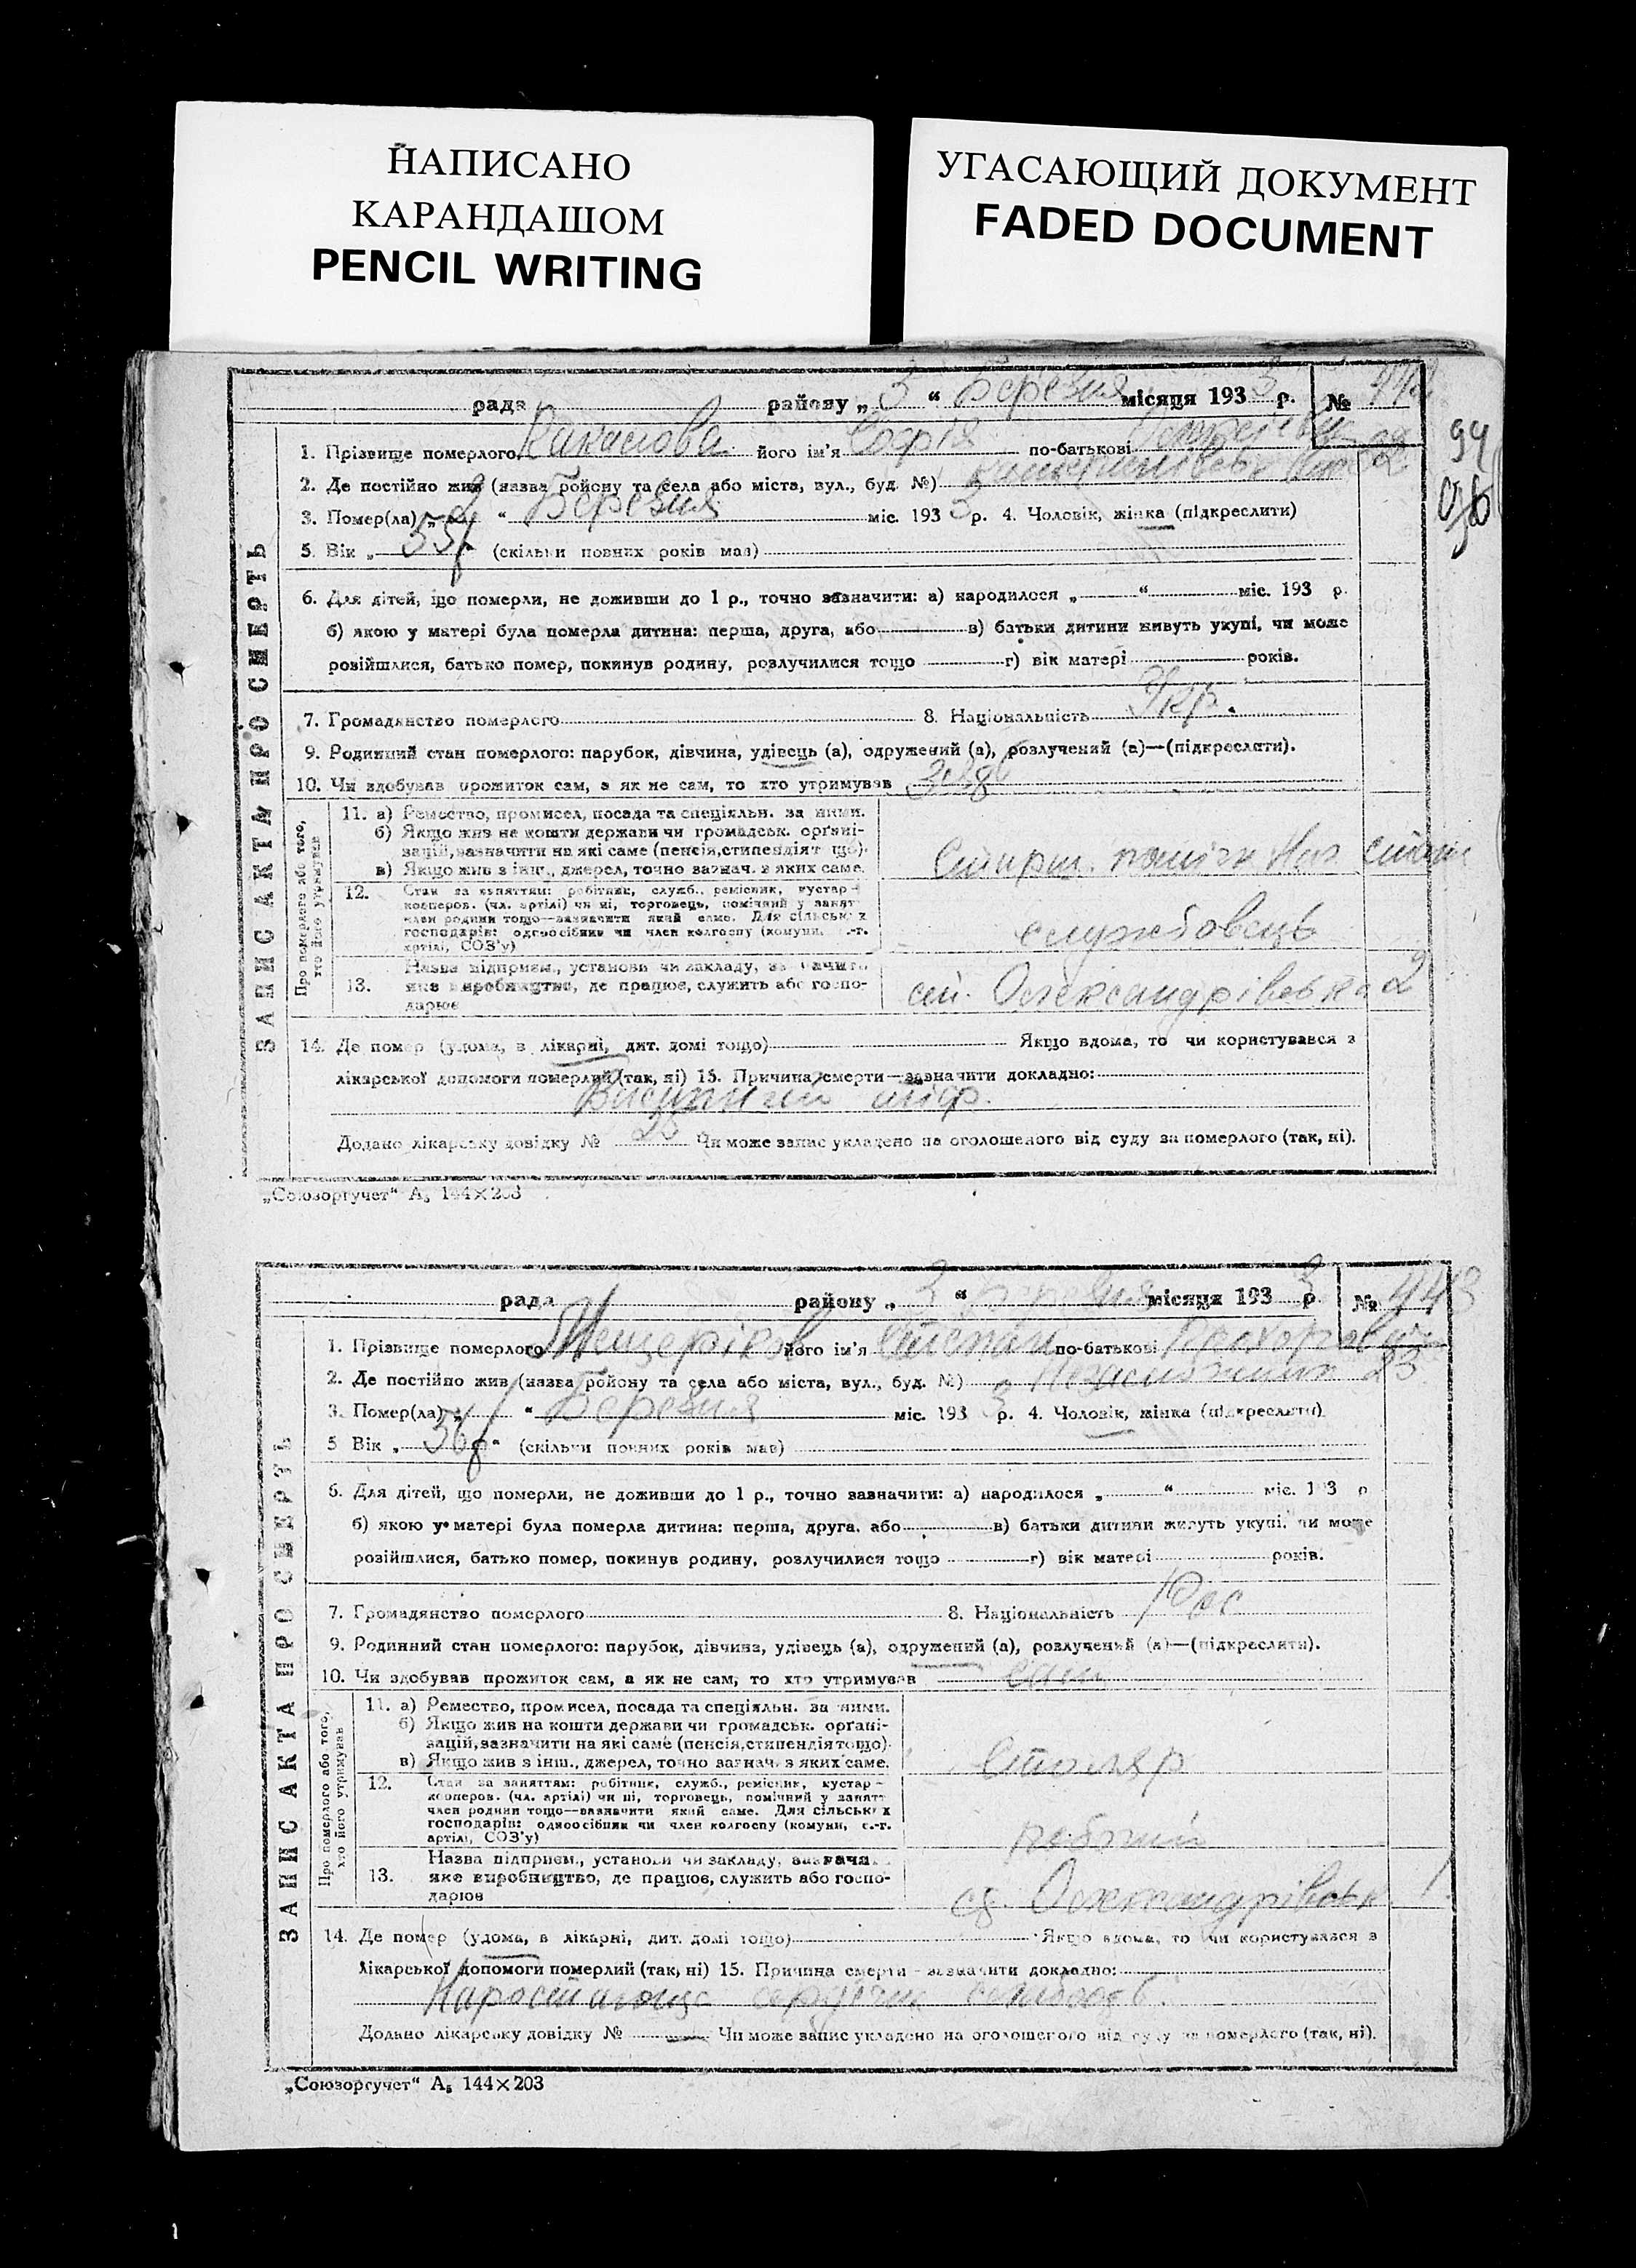 НАПИСАНО
КАРАНДАШОМ
PENCIL WRITING
УГАСАЮЩИЙ ДОКУМЕНТ
FADED DOCUMENT
ЗАПИС АКТА ПРО СМЕРТЬ
рада района „ 3 “ Березня місяця 193 3 р. №
94
1. Прізвище померлого його ім'я Софія по-батькові
2. Де постійно жив (назва району та села або міста, вул., буд. №)
3. Помер(ла) „ 2 “ Березня міс. 193 3 р. 4. Чоловік, жінка (підкреслити)
5. Вік „ 55 (скільки повних років мав)
6. Для дітей, що померли, не доживши до 1 р., точно зазначити: а) народилося „ “ міс. 193 р.
б) якою у матері була померла дитина: перша, друга, або в) батьки дитини живуть укупі, чи може
розійшлися, батько помер, покинув родину, розлучилися тощо г) вік матері років.
7. Громадянство померлого 8. Національність Укр.
9. Родинний стан померлого: парубок, дівчина, удівець (а), одружений (а), розлучений (а)—(підкреслити).
10. Чи здобував прожиток сам, а як не сам, то хто утримував
Про померлого або того, хто його утримував
11. а) Ремество, промисел, посада та спеціяльн. за ними.
б) Якщо жив на кошти держави чи громадськ. органі-
зацій, зазначити на які саме (пенсія, стипендія тощо).
в) Якщо жив з інш., джерел, точно зазнач. з яких саме.
12. Стан за заняттям: робітник, служб., ремісник, кустар-
кооперов. (чл. артілі) чи ні, торговець, помічний у занятт
член родини тощо—зазначити який саме. Для сільських
господарів: одноосібник чи член колгоспу (комуни, с.-г.
артілі, СОЗ'у)
службовець
13. Назва підприєм., установи чи закладу, зазначити
яке виробництво, де працює, служить або госпо-
дарює
Олександрівська 2
14. Де помер (удома, в лікарні, дит. домі тощо) Якщо вдома, то чи користувався з
лікарської допомоги померлий (так, ні) 15. Причина смерти—зазначити докладно:
Висипний тіф.
Додано лікарську довідку № 25 Чи може запис укладено на оголошеного від суду за померлого (так, ні).
„Союзоргучет“ А₅ 144×203
ЗАПИС АКТА ПРО СМЕРТЬ
рада району „ 3 “ Березня місяця 193 3 р. № 443
1. Прізвище померлого Мещеріков його ім'я Степан по-батькові Прохорович
2. Де постійно жив (назва району та села або міста, вул., буд. №) Незаможник 23
3. Помер(ла) „ 1 “ Березня міс. 193 3 р. 4. Чоловік, жінка (підкреслити)
5 Вік „ 56 “ (скільки повних років мав)
6. Для дітей, що померли, не доживши до 1 р., точно зазначити: а) народилося „ “ міс. 193 р
б) якою у матері була померла дитина: перша, друга, або в) батьки дитини живуть укупі, чи може
розійшлися, батько помер, покинув родину, розлучилися тощо г) вік матері років.
7. Громадянство померлого 8. Національність Рос
9. Родинний стан померлого: парубок, дівчина, удівець (а), одружений (а), розлучений (а)—(підкреслити).
10. Чи здобував прожиток сам, а як не сам, то хто утримував сам
Про померлого або того, хто його утримував
11. а) Ремество, промисел, посада та спеціяльн. за ними.
б) Якщо жив на кошти держави чи громадськ. органі-
зацій, зазначити на які саме (пенсія, стипендія тощо).
в) Якщо жив з інш., джерел, точно зазнач. з яких саме.
Столяр
12. Стан за заняттям: робітник, служб., ремісник, кустар-
кооперов. (чл. артілі) чи ні, торговець, помічний у занятт
член родини тощо—зазначити який саме. Для сільських
господарів: одноосібник чи член колгоспу (комуни, с.-г.
артілі, СОЗ'у)
13. Назва підприєм., установи чи закладу, зазнача
яке виробництво, де працює, служить або госпо-
дарює
Олександрівськ 1
14. Де помер (удома, в лікарні, дит. домі тощо) Якщо вдома, то чи користувався з
лікарської допомоги померлий (так, ні) 15. Причина смерти—зазначити докладно:
Додано лікарську довідку № Чи може запис укладено на оголошеного від суду за померлого (так, ні).
„Союзоргучет“ А₅ 144×203